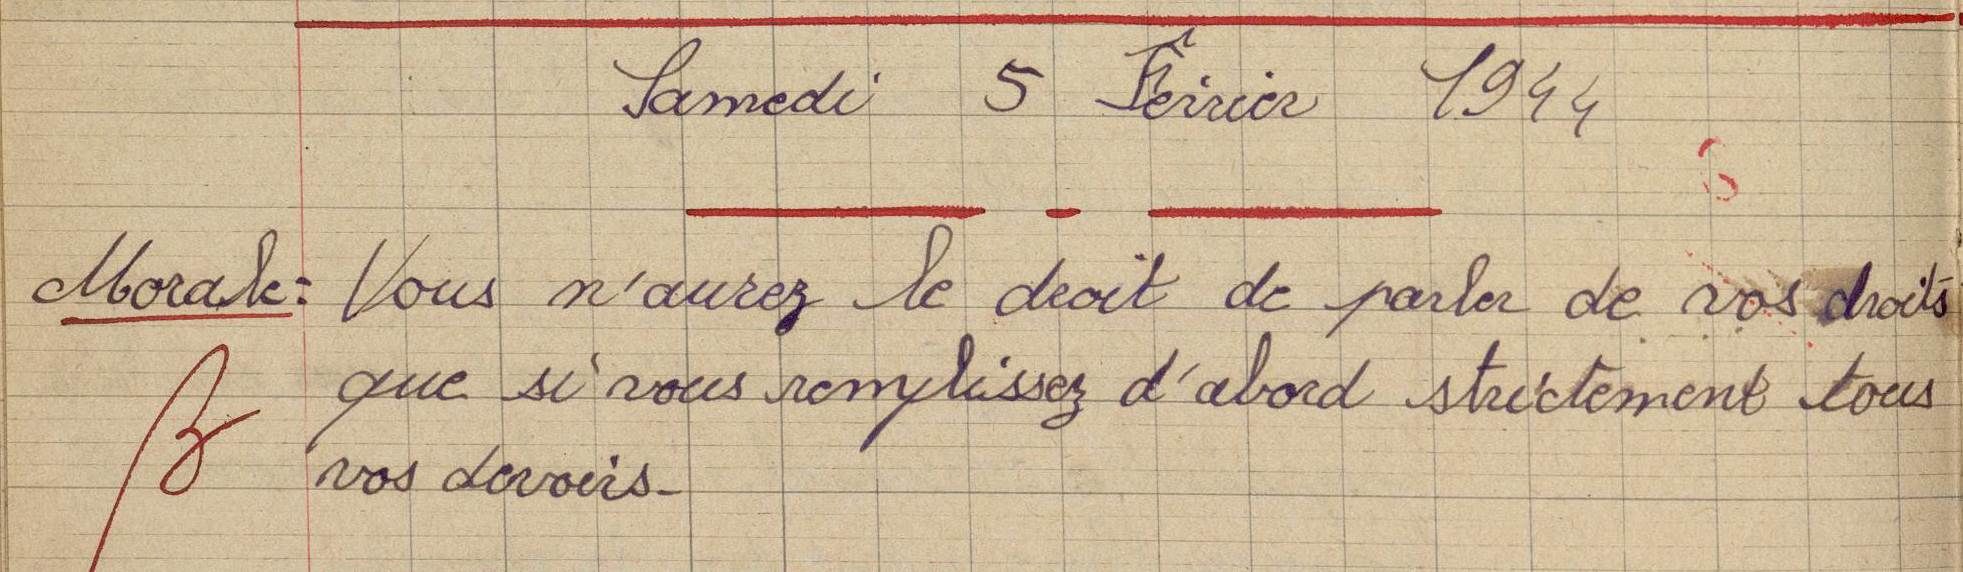 Samedi 5 Février 1944
Morale: Vous n'aurez le droit de parler de vos droits
que si vous remplissez d'abord strictement tous
vos devoirs.